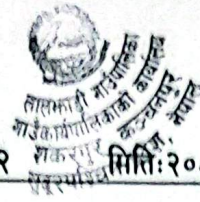 लालझाडी गाउँपालिका
गाउँकार्यपालिकाको कार्यालय
शंकरपुर
कञ्चनपुर
नेपाल
सुदूरपश्चिम
२
मितिः२०